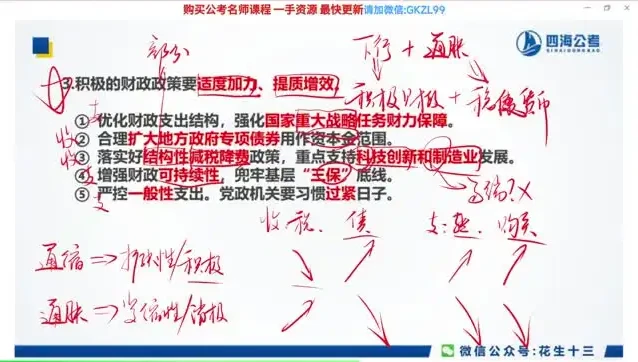 购买公考名师课程 一手资源 最快更新请加微信:GKZL99
四海公考
SIHAIGONGKAO
部分
下行 + 通胀
积极财政 + 稳健货币
3.积极的财政政策要适度加力、提质增效。
支 ① 优化财政支出结构，强化国家重大战略任务财力保障。
收 ② 合理扩大地方政府专项债券用作资本金范围。
收 ③ 落实好结构性减税降费政策，重点支持科技创新和制造业发展。
支 ④ 增强财政可持续性，兜牢基层“三保”底线。
支 ⑤ 严控一般性支出。党政机关要习惯过紧日子。
高端?×
收:税、债 支:转、购买
通缩 ⇒ 扩张性/积极 ↘ ↗ ↗ ↗
通胀 ⇒ 紧缩性/消极 ↗ ↘ ↘ ↘
微信公众号:花生十三